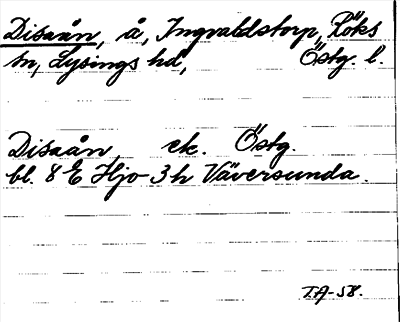 Disaån, å, Ingvaldstorp, Röks
sn, Lysings hd, Östg. l.
Disaån, ek. Östg.
bl. 8 E Hjo 3 h Väversunda.
T.A-58.